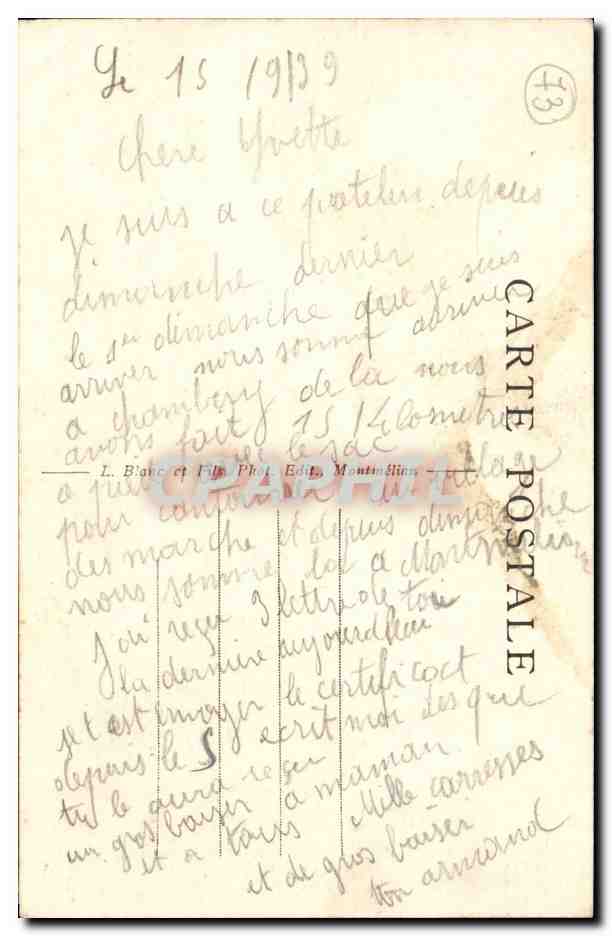 Le 15 19/39
73
chere Yvette
je suis a ce patelin depuis
dimanche dernier
le 1er dimanche que je suis
arriver nous somme arriver
a chambery de la nous
avons fait 15 kilometre
a pied avec le sac
L. Blanc et Fils, Phot. Edit., Montmélian
CPAPHIL
pour village
des marche et depuis dimanche
nous somme la a Montmelian
J'ai reçu 3 lettre de toi
la derniere aujourdhui
je t est envoyer le certificact
depuis le 5 ecrit moi des que
tu le aura reçu
un gros baiser a maman
et a tous Mille carresses
et de gros baiser
ton armand
CARTE POSTALE